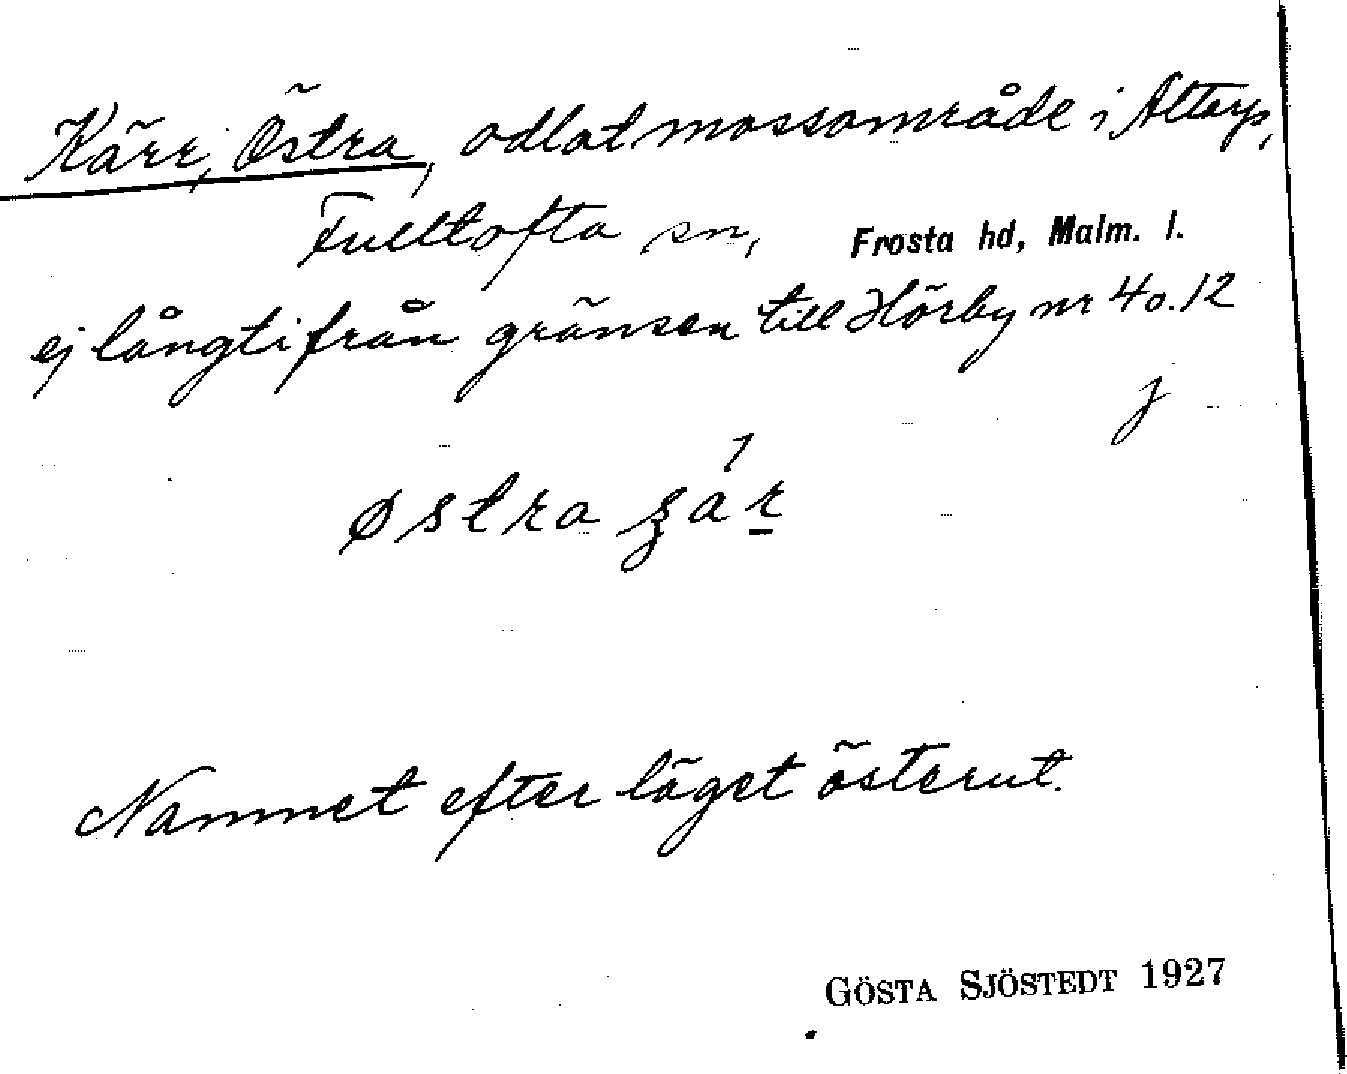 Kärr, Östra, odlat mossområde i Altarp,
Fulltofta sn, Frosta hd, Malm. l.
ej långt ifrån gränsen till Hörby nr 4 o. 12
J
østra
Namnet efter läget österut.
GÖSTA SJÖSTEDT 1927